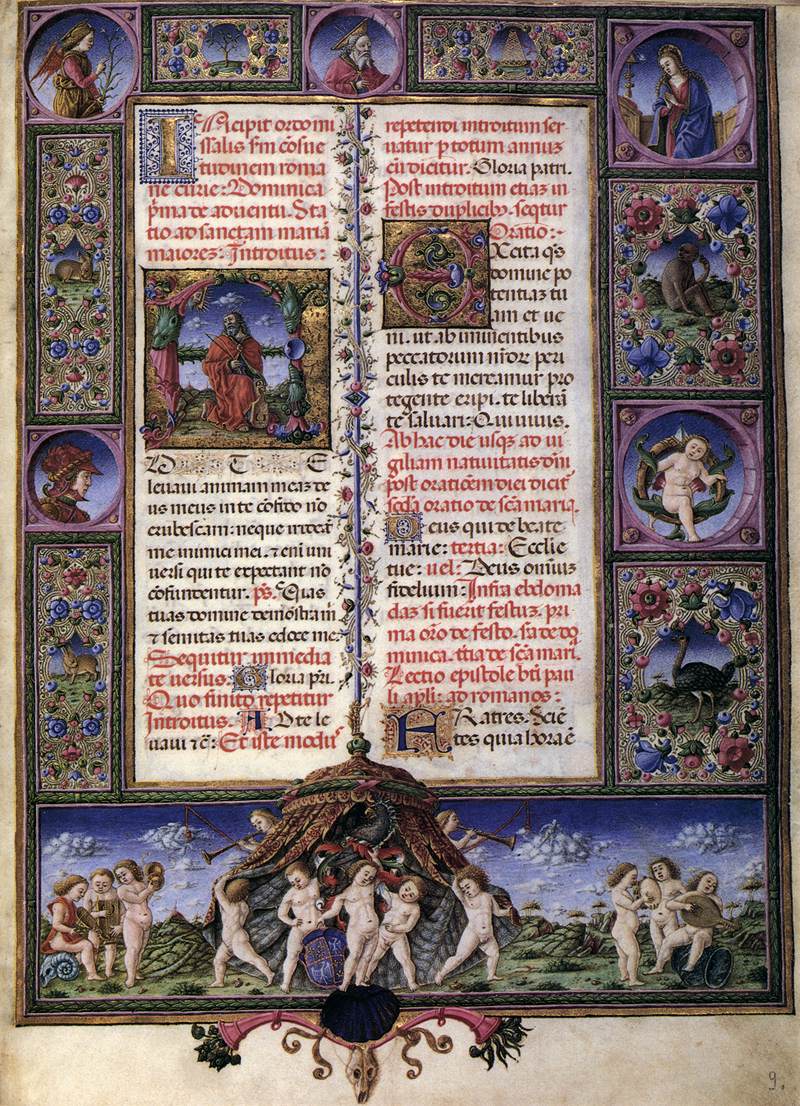 Incipit ordo mi
ssalis s̄m cōsue
tudinem roma
ne curie: Dominica
p̄ma de aduentu. Sta
tio ad sanctam mariā
maiorem: Introitus:
D T E
leuaui animam meaz de
us meus in te cōfido nō
erubescam: neque irrideāt
me inimici mei. ⁊ em̄ uni
uersi qui te expectant nō
cōfundentur. ps̄. Uias
tuas domine demōstra m̄
⁊ semitas tuas edoce me.
Sequitur immedia
te versus. Gloria pr̄i.
Quo finito repetitur
Introitus. AD te le
uaui ⁊c̄: Et iste modus
repetendi introitum ser
uatur p totum annuz
cū dicitur. Gloria patri.
Post introitum etiaz in
festis duplicibꝰ. seqtur
Oratio:
EXcita qs
domine po
tentiaz tu
am et ue
ni. ut ab iminentibus
peccatorum nr̄or peri
culis te mereamur pro
tegente eripi. te liberāt
te saluari: Qui uiuis.
Ab hac die usqz ad ui
giliam natiuitatis dn̄i
post oratiōem diei dicit̄
scd̄a oratio de scā maria.
Deus qui de beate
marie: tertia: Ecclie
tue: uel: Deus omniuz
fidelium: Infra ebdoma
daz si fuerit festuz. pri
ma or̄o de festo. sa de do
minica. t̄tia de scā mari.
Lectio epistole bt̄i pau
li apl̄i: ad romanos:
FRatres. Sciē
tes quia hora ē
9.